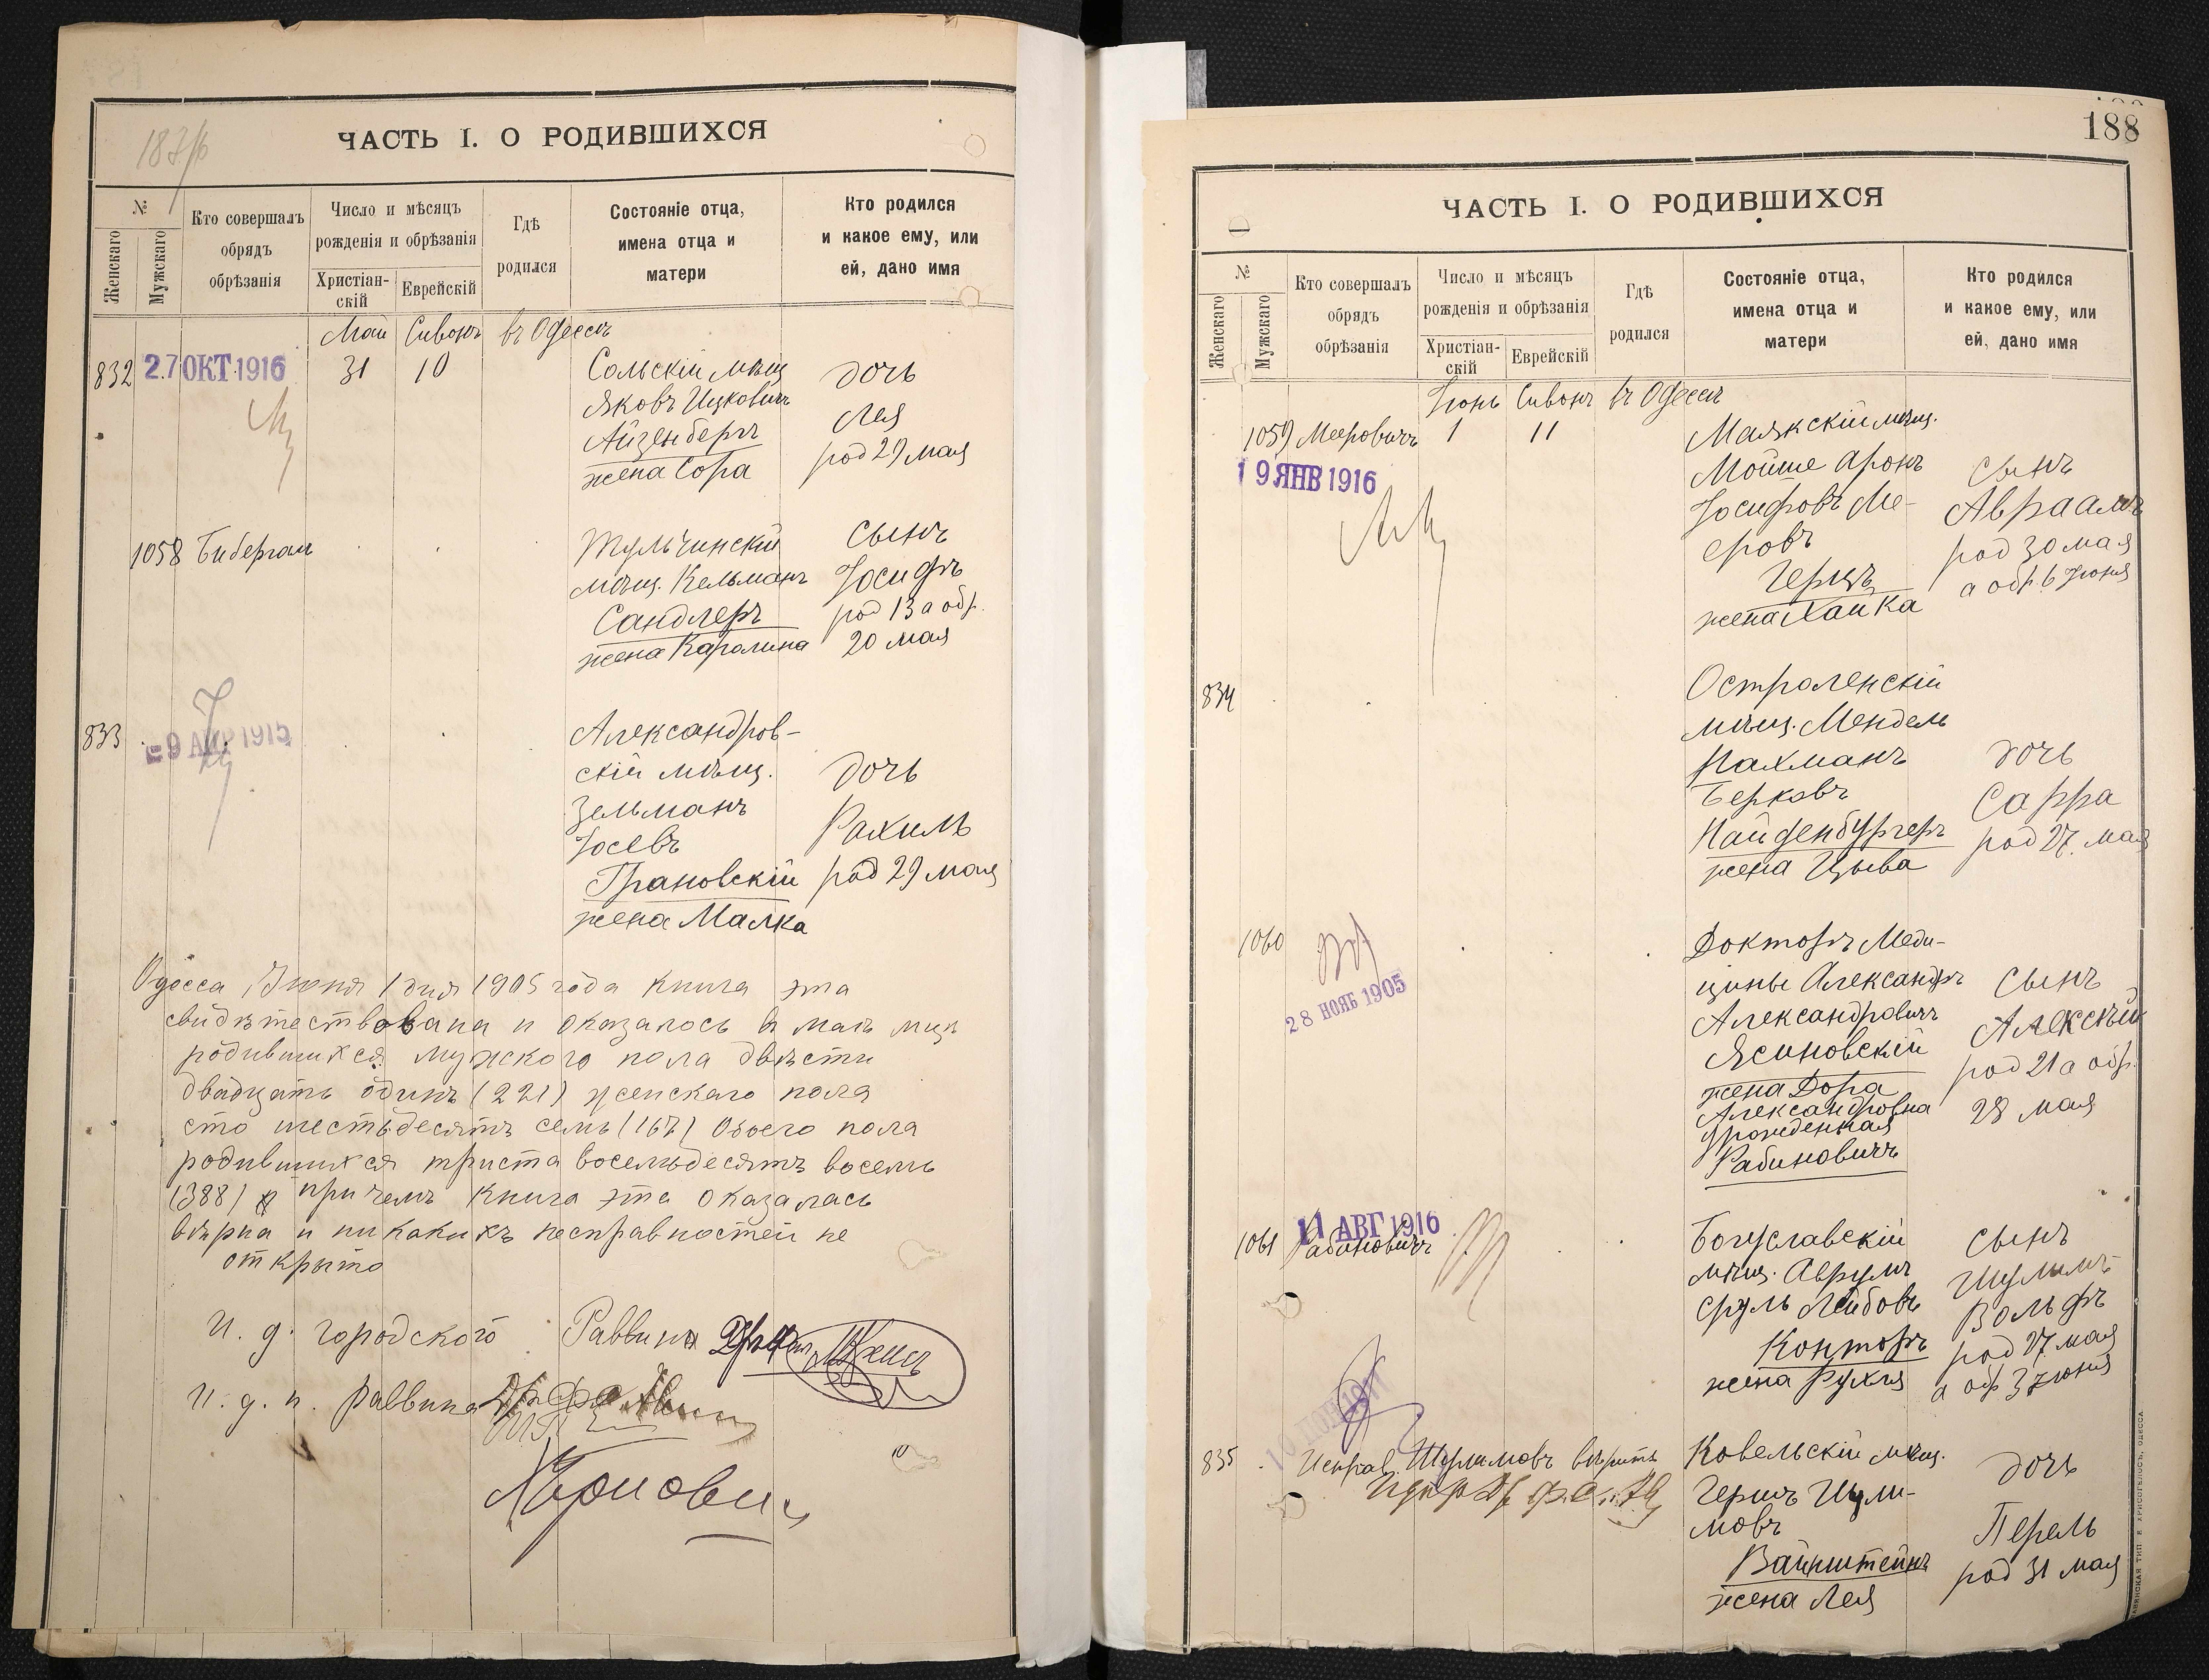 187/б
ЧАСТЬ I. О РОДИВШИХСЯ
№
Женскаго
Мужскаго
Кто совершалъ
обрядъ
обрѣзанія
Число и мѣсяцъ
рожденія и обрѣзанія
Христіан-
скій
Еврейскій
Гдѣ
родился
Состояніе отца,
имена отца и
матери
Кто родился
и какое ему, или
ей, дано имя
Май Сивонъ въ Одессѣ
832 27 ОКТ 1916 31 10
Сольскій мѣщ
Яковъ Ицковичъ
Айзенбергъ
жена Сора
дочь
Лея
род 29 мая
1058 Бибергал
Тульчинскій
мѣщ. Кельманъ
Сандлеръ
жена Каролина
сынъ
Іосифъ
род 13 а обр.
20 мая
833 - 9 АПР 1915
Александров-
скій мѣщ.
Зельманъ
Іосевъ
Грановскій
жена Малка
дочь
Рахиль
род 29 мая
Одесса, Іюня 1 дня 1905 года книга эта
свидѣтествована и оказалось въ маѣ мцѣ
родившихся мужского пола двѣсти
двадцать одинъ (221) женскаго пола
сто шестьдесятъ семь (167) Обоего пола
родившихся триста восемьдесятъ восемь
(388) причемъ книга эта оказалась
вѣрна и никакихъ несправностей не
открыто
И. д. городского Раввина
И. д. п. раввина
188
ЧАСТЬ I. О РОДИВШИХСЯ
№
Женскаго
Мужскаго
Кто совершалъ
обрядъ
обрѣзанія
Число и мѣсяцъ
рожденія и обрѣзанія
Христіан-
скій
Еврейскій
Гдѣ
родился
Состояніе отца,
имена отца и
матери
Кто родился
и какое ему, или
ей, дано имя
Іюнь Сивонъ въ Одессѣ
1059 Мееровичъ 1 11
19 ЯНВ 1916
Маякскій мѣщ.
Мойше Аронъ
Іосифовъ Ме-
еровъ
Герцъ
жена Хайка
сынъ
Авраамъ
род 30 мая
а обр. 6 Іюня
834
Остроленскій
мѣщ. Мендель
Нахманъ
Берковъ
Найденбургеръ
жена Цыва
дочь
Сарра
род 27 мая
1060
28 НОЯБ 1905
Докторъ Меди-
цины Александръ
Александровичъ
Ясиновскій
жена Дора
Александровна
урожденная
Рабиновичъ
сынъ
Алексѣй
род 21 а обр.
28 мая
11 АВГ 1916
1061 Рабиновичъ
Богуславскій
мѣщ. Аврумъ
Сруль Лейбовъ
Конторъ
жена Рухля
сынъ
Шулимъ
Вольфъ
род 27 мая
а обр 3 Іюня
835
Исправ. Шулимовъ вѣрить
Ковельскій мѣщ.
Гершъ Шули-
мовъ
Вайнштейнъ
жена Лея
дочь
Перель
род 31 мая